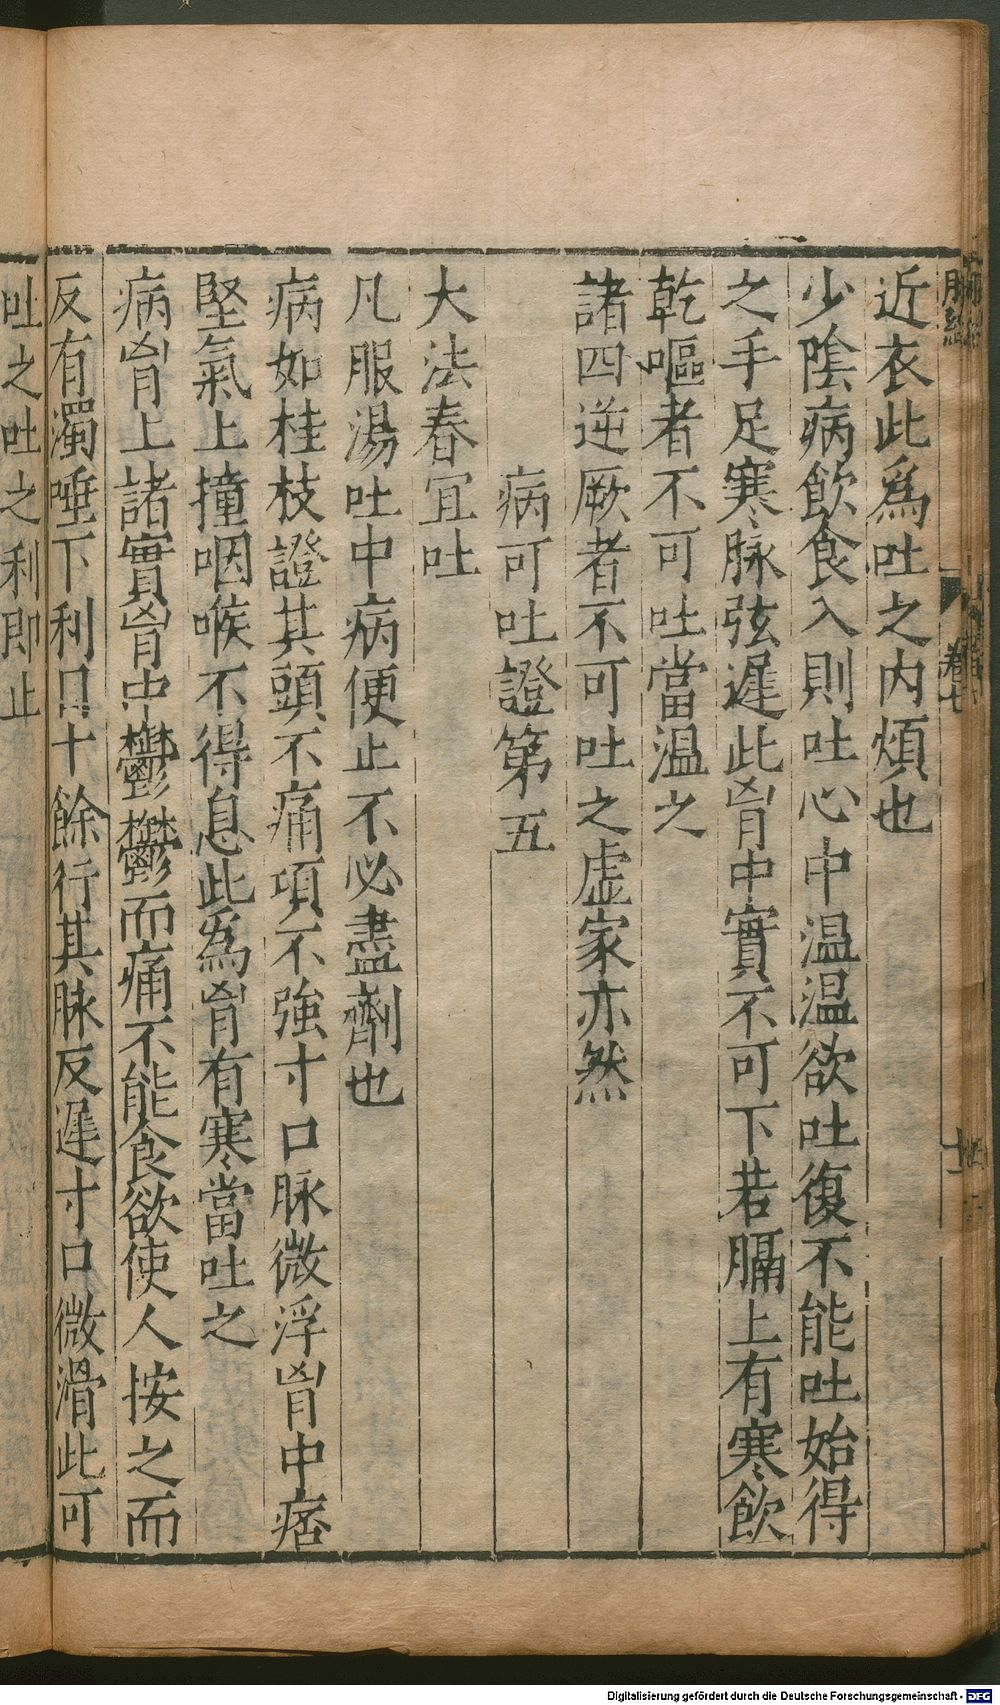 脉經 卷七 十
近衣此爲吐之内煩也
少陰病飲食入則吐心中温温欲吐復不能吐始得
之手足寒脉弦遲此胷中實不可下若膈上有寒飲
乾嘔者不可吐當温之
諸四逆厥者不可吐之虚家亦然
病可吐證第五
大法春宜吐
凡服湯吐中病便止不必盡劑也
病如桂枝證其頭不痛項不強寸口脉微浮胷中痞
堅氣上撞咽喉不得息此爲胷有寒當吐之
病胷上諸實胷中鬱鬱而痛不能食欲使人按之而
反有濁唾下利日十餘行其脉反遲寸口微滑此可
吐之吐之利即止
Digitalisierung gefördert durch die Deutsche Forschungsgemeinschaft - DFG